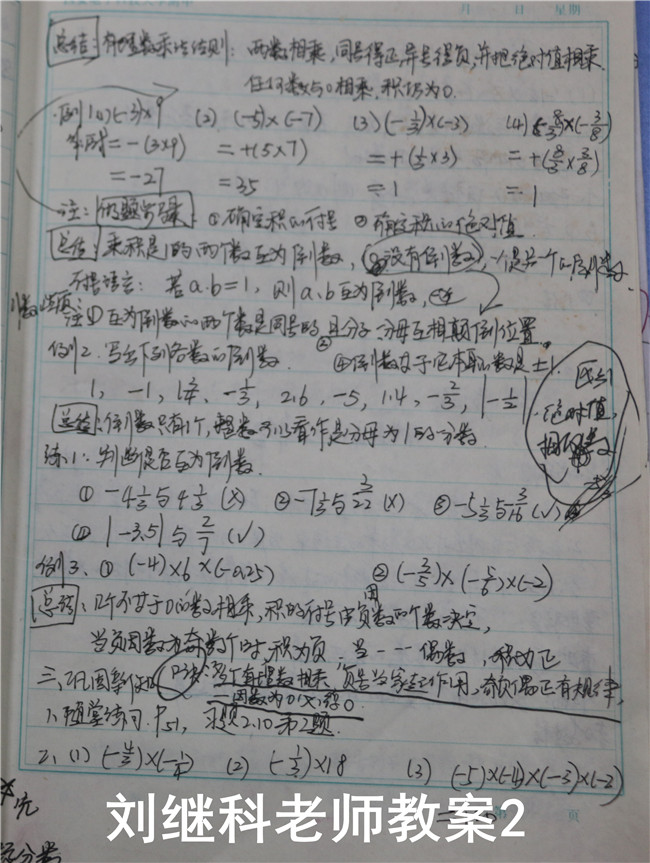 月 日 星期
总结:有理数乘法法则:两数相乘,同号得正,异号得负,并把绝对值相乘.
任何数与0相乘,积仍为0.
例1 (1) (-3)×9 (2) (-5)×(-7) (3) (-1/3)×(-3) (4) (-8/3)×(-3/8)
解:原式=-(3×9) =+(5×7) =+(1/3×3) =+(8/3×3/8)
=-27 =35 =1 =1
注:解题步骤:①确定积的符号 ②确定积的绝对值
总结:乘积是1的两个数互为倒数,(0没有倒数),一个是另一个的倒数
符号语言:若a·b=1,则a、b互为倒数,
注①互为倒数的两个数是同号的,②且分子、分母互相颠倒位置.
例2.写出下列各数的倒数. ④倒数等于它本身的数是±1.
1, -1, -1/3, 2.6, -5, 1.4, -2/3, |-1/2|.
区别 绝对值, 相反数
总结:倒数只有1个,整数可以看作是分母为1的分数.
练1:判断是否互为倒数.
① -4 1/3与4 1/3 (×) ② -7 1/3与3/22 (×) ③ -5 1/3与3/16 (√)
④ |-3.5|与2/7 (√)
例3、① (-4)×6×(-0.25) ② (-3/5)×(-5/6)×(-2)
总结:几个不等于0的数相乘,积的符号由负因数的个数决定,
当负因数为奇数个时,积为负.当---偶数,积为正
三、巩固单有理数相乘,负号当家起作用,奇负偶正有规律,
因数为0,必得0.
1、随堂练习:P51, 习题2.10第2题.
2、(1) ×(-1/4) (2) (-1/3)×18 (3) (-5)×(-4)×(-3)×(-2)
页
刘继科老师教案2